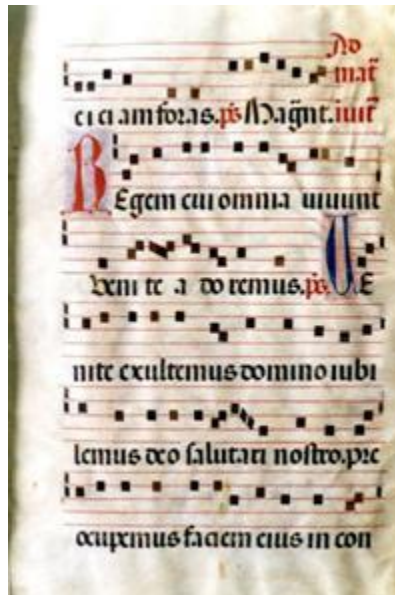 Ad
mat̄
ci ci am foras. p̄s Mag̅nt. iuit̄
Regem cui omnia uiuunt
Veni te a do remus. p̄s. VE
nite exultemus domino iubi
lemus deo salutari nostro. pre
ocupemus faciem eius in con